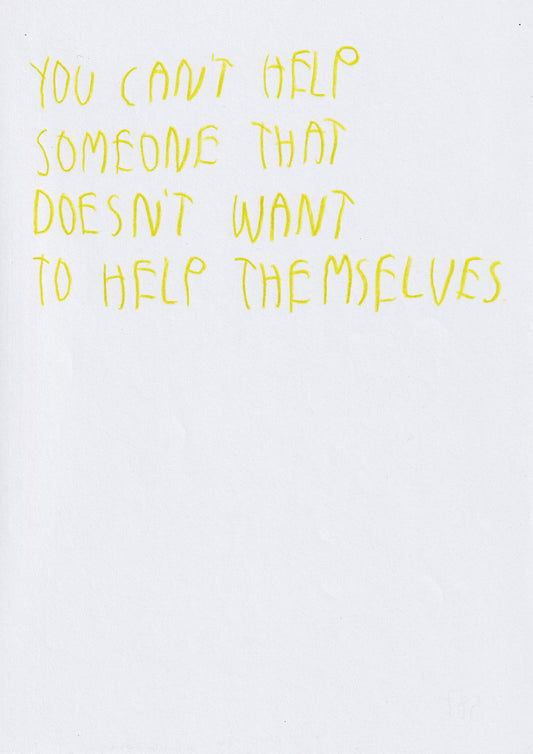 YOU CAN'T HELP
SOMEONE THAT
DOESN'T WANT
TO HELP THEMSELVES